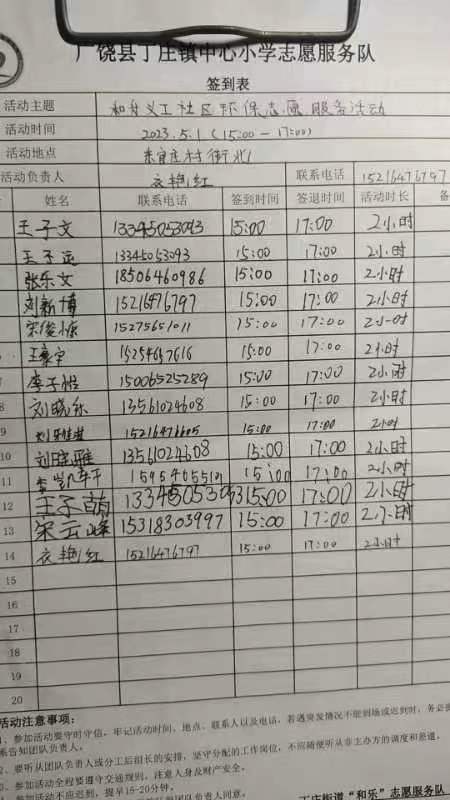 广饶县丁庄镇中心小学志愿服务队
签到表
活动主题 和乡义工社区环保志愿服务活动
活动时间 2023.5.1 (15:00-17:00)
活动地点 村街北
活动负责人 衣艳红 联系电话 15216476797
姓名 联系电话 签到时间 签退时间 活动时长 备
王子文 13345053093 15:00 17:00 2小时
王子 13345053093 15:00 17:00 2小时
张乐文 18506460986 15:00 17:00 2小时
刘新博 15216476797 15:00 17:00 2小时
宋俊 15275651011 15:00 17:00 2小时
王宇 15254657616 15:00 17:00 2小时
7 李子 15006525289 15:00 17:00 2小时
8 刘晓乐 13561024608 15:00 17:00 2小时
9 刘 15216476605 15:00 17:00 2小时
10 刘晓雅 13561024608 15:00 17:00 2小时
11 15954655101 15:00 17:00 2小时
12 王子萌 13345053093 15:00 17:00 2小时
13 宋云峰 15318303997 15:00 17:00 2小时
14 衣艳红 15216476797 15:00 17:00 2小时
15
16
17
18
19
20
活动注意事项：
1、参加活动要守时守信，牢记活动时间、地点、联系人以及电话，若遇突发情况不能到场或迟到时，务必提
系告知团队负责人。
2、要听从团队负责人或分工后组长的安排，坚守分配的工作岗位，不应随便听从非主办方的调度和差遣。
3、参加活动全程要遵守交通规则，注意人身及财产安全。
参加活动不应迟到，提早15-20分钟。
团队负责人同意。
丁庄街道“和乐”志愿服务队